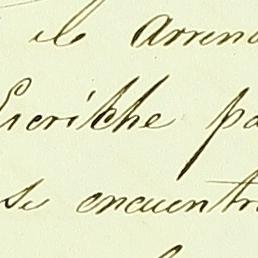 el arrend
Escriche pa
se encuentra